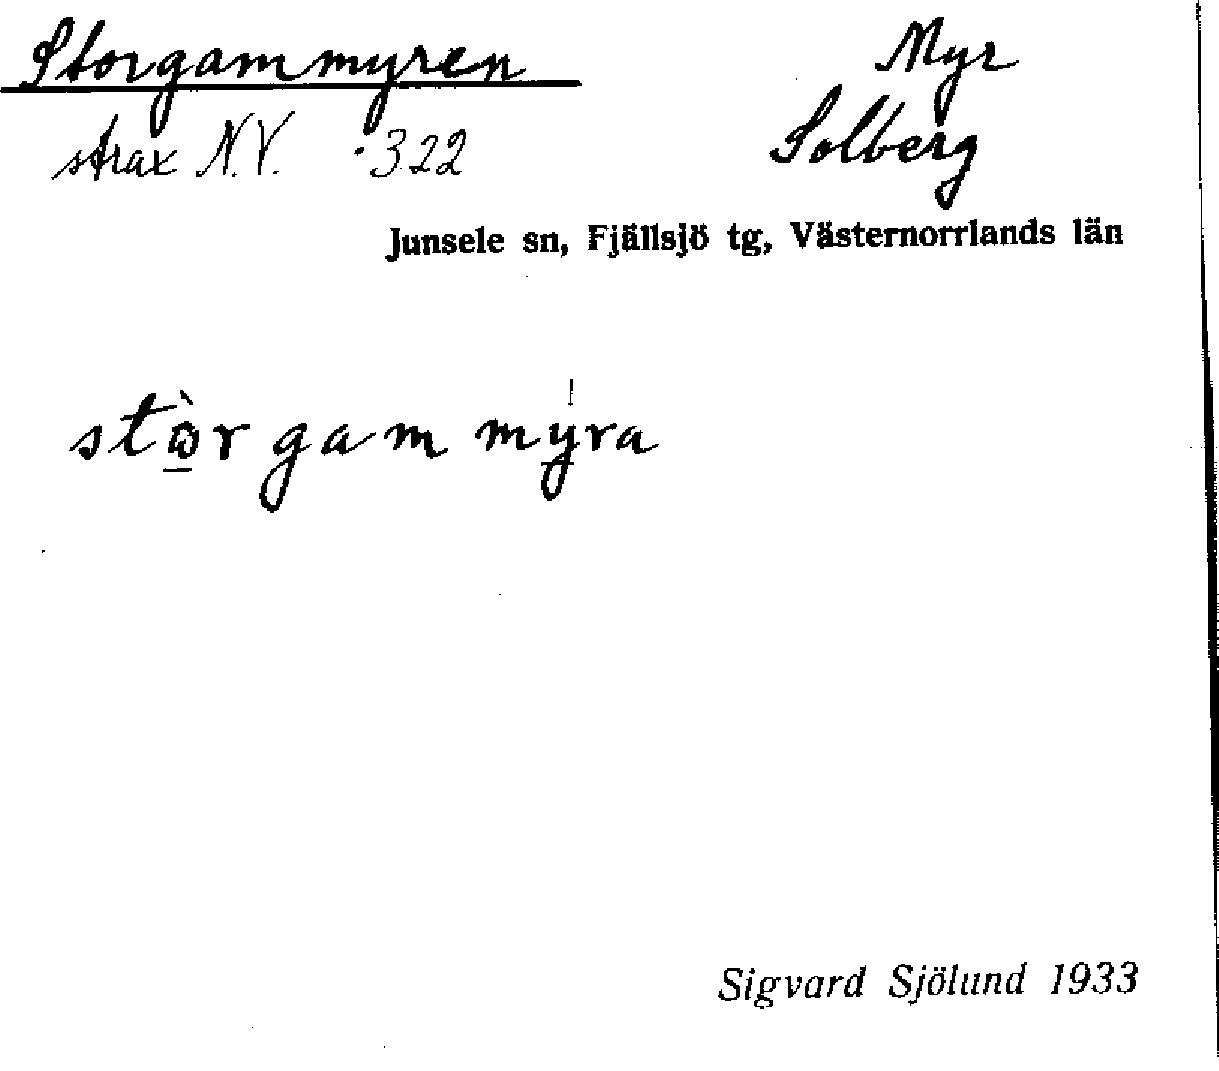 Storgammyren
Myr
strax N.V. ·322
Solberg
Junsele sn, Fjällsjö tg, Västernorrlands län
stò̱r gam myra
Sigvard Sjölund 1933